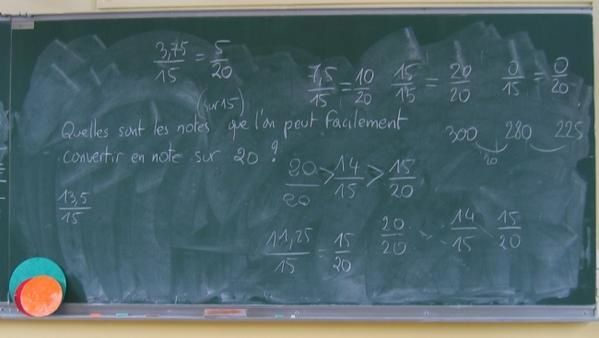 3,75/15 = 5/20
7,5/15 = 10/20
15/15 = 20/20
0/15 = 0/20
(sur 15)
Quelles sont les notes que l'on peut facilement
convertir en note sur 20 ?
300 280 225
20
20/20 > 14/15 > 15/20
13,5/15
11,25/15 = 15/20
20/20 14/15 15/20